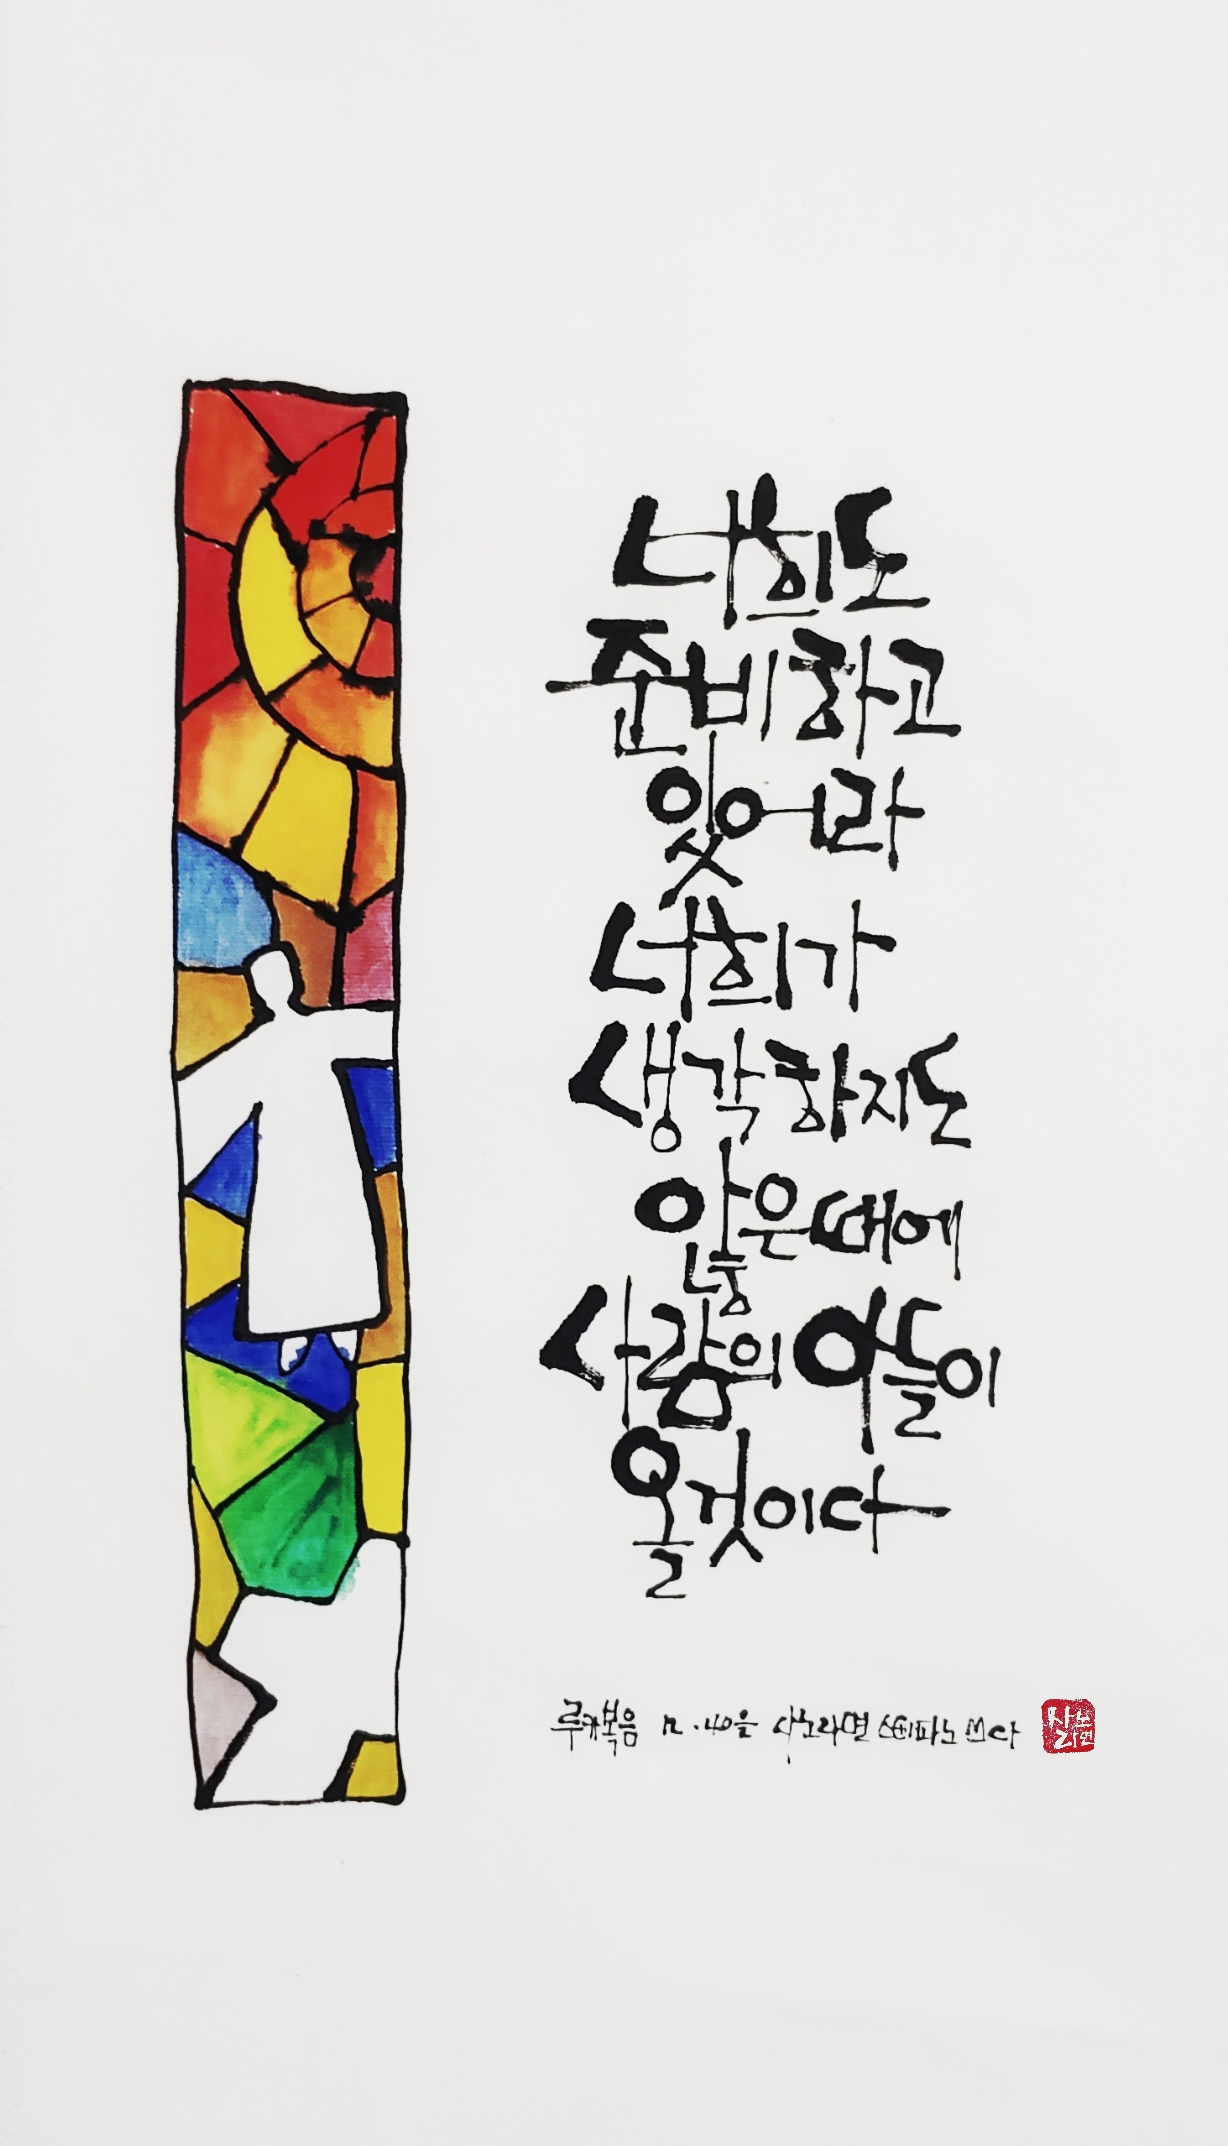 너희도
준비하고
있어라
너희가
생각하지도
않은 때에
사람의 아들이
올 것이다
루카복음 12.40을 사노라면 스테파노 쓰다